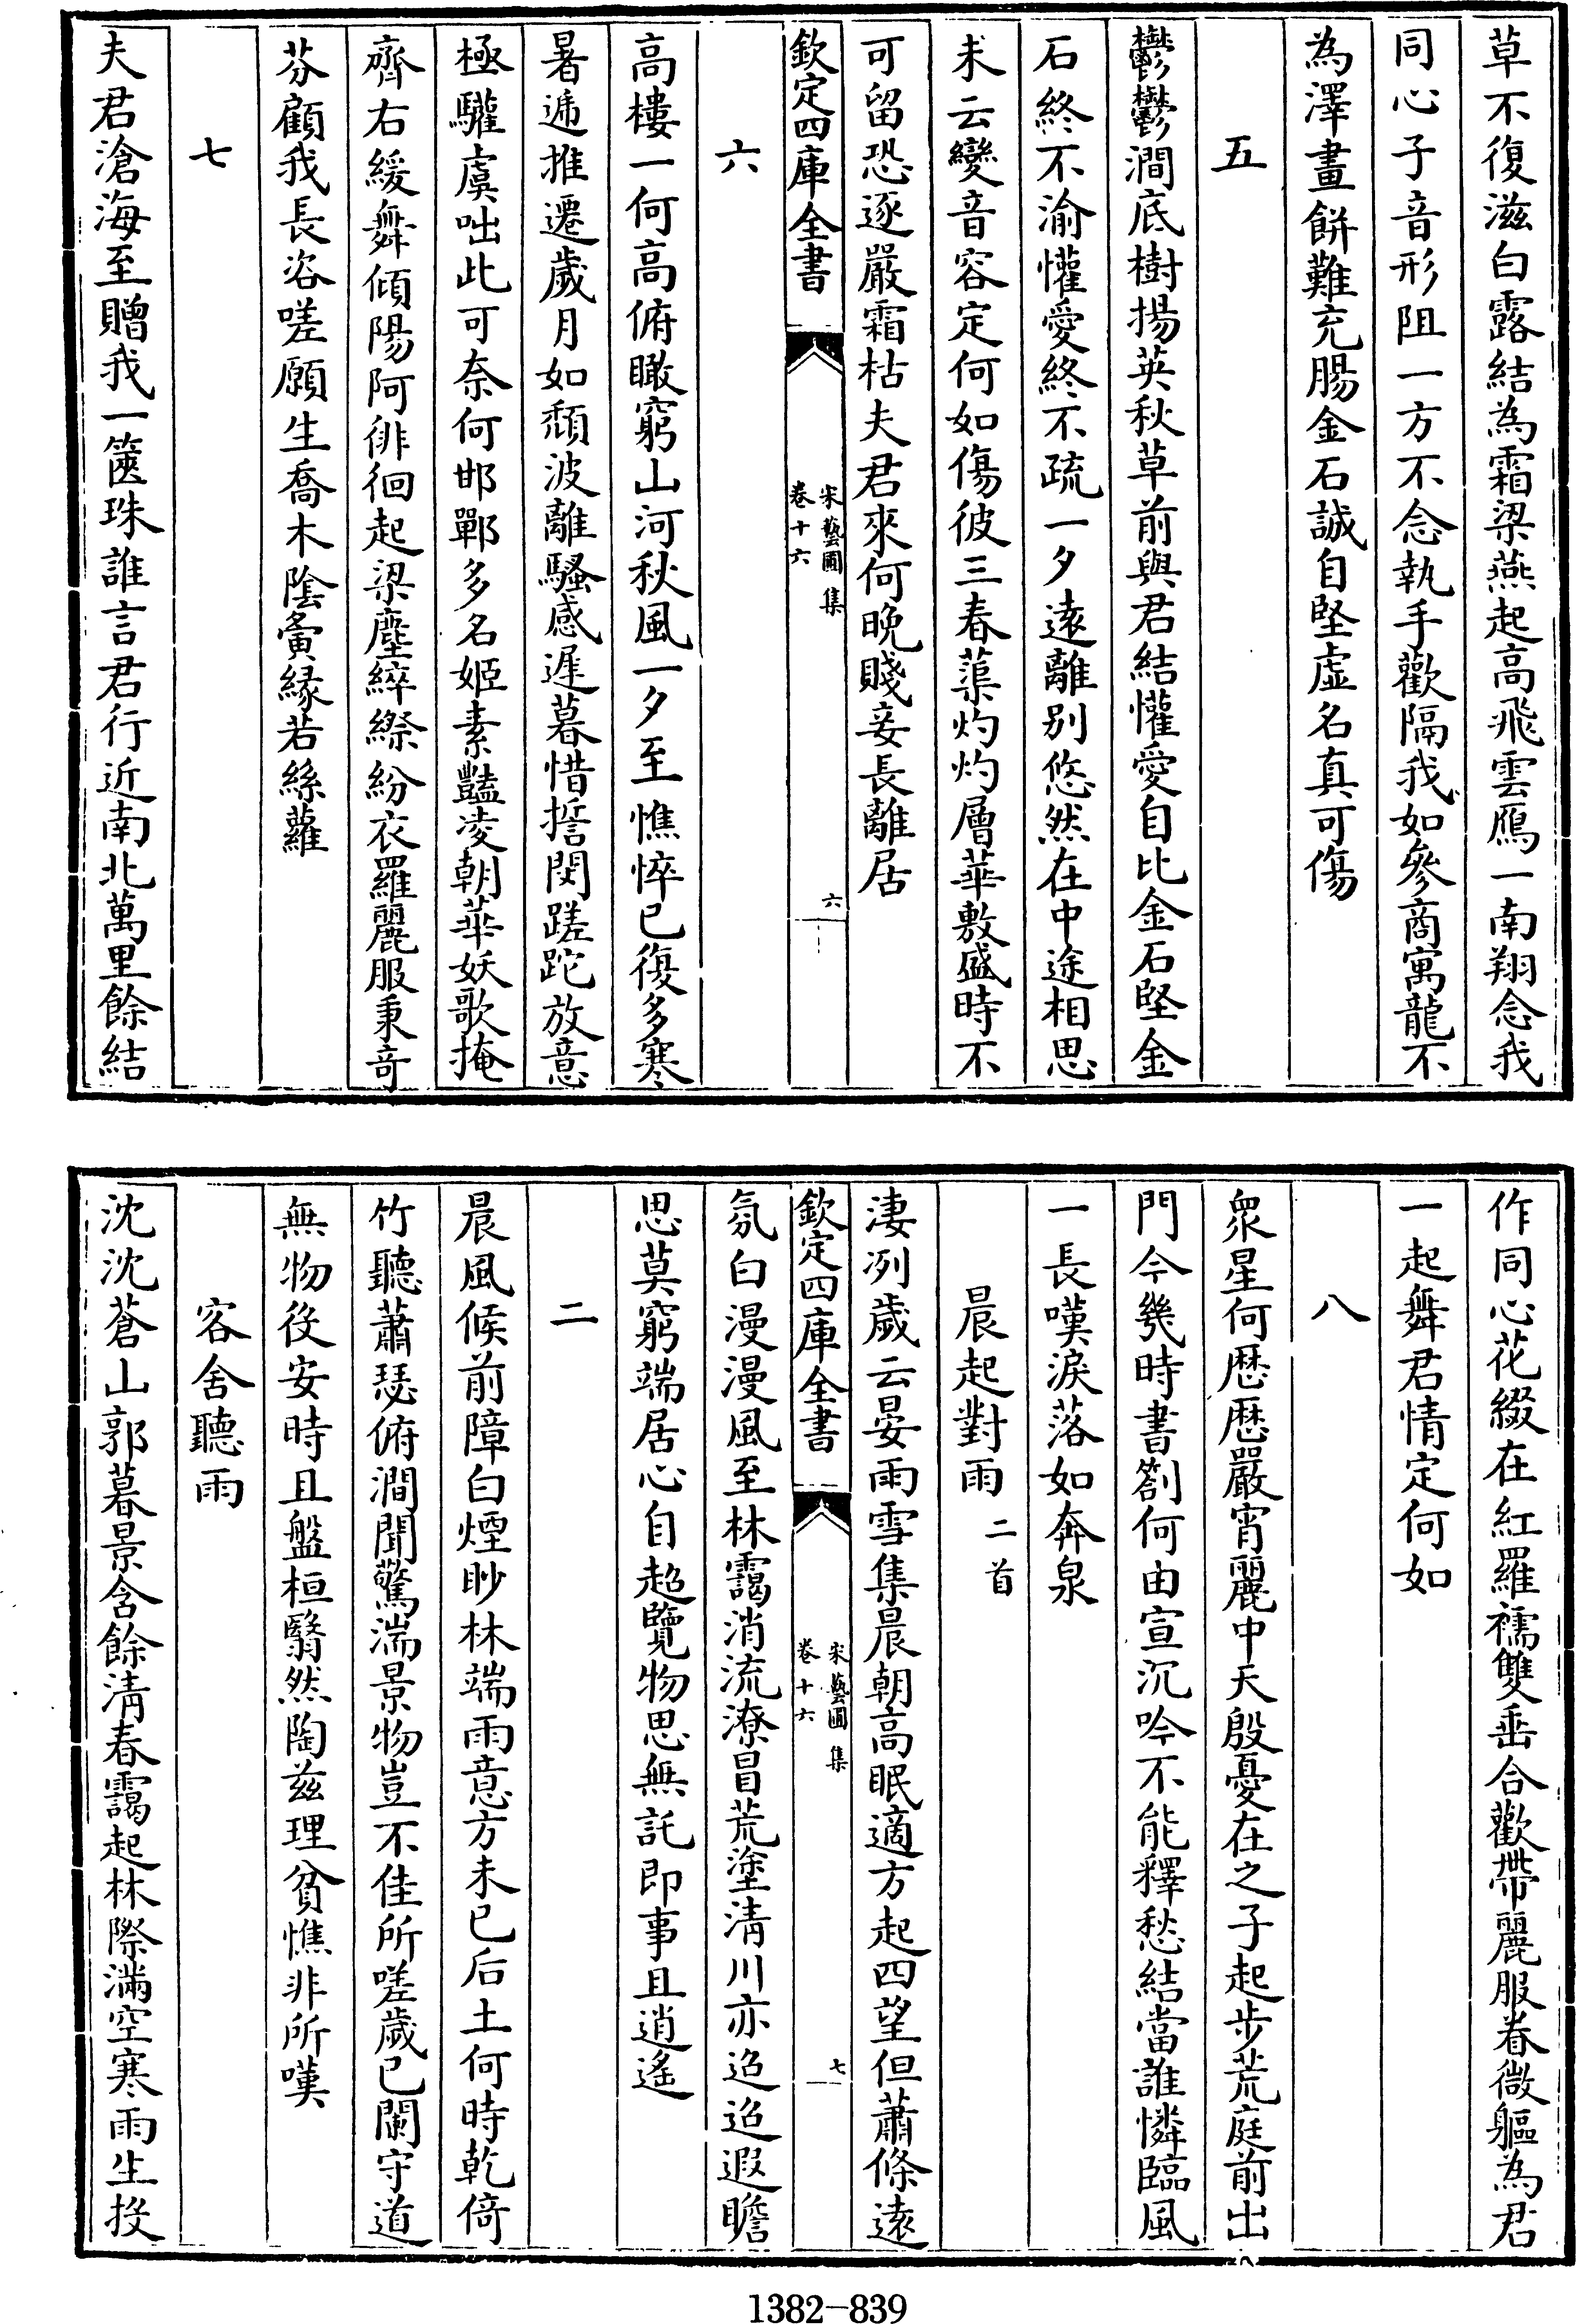 草不復滋白露結為霜梁燕起高飛雲鴈一南翔念我
同心子音形阻一方不念執手歡隔我如參商寓龍不
為澤畫餅難充腸金石誠自堅虛名真可傷
五
鬱鬱澗底樹揚英秋草前與君結懽愛自比金石堅金
石終不渝懽愛終不疏一夕遠離別悠然在中途相思
未云變音容定何如傷彼三春蕖灼灼層華敷盛時不
可留恐逐嚴霜枯夫君來何晚賤妾長離居
欽定四庫全書
宋藝圃集
卷十六
六
六
高樓一何高俯瞰窮山河秋風一夕至憔悴已復多寒
暑遞推遷歲月如頹波離騷感遲暮惜誓閔蹉跎放意
極驩虞咄此可奈何邯鄲多名姬素豔凌朝華妖歌掩
齊右緩舞傾陽阿徘徊起梁塵綷縩紛衣羅麗服秉奇
芬顧我長咨嗟願生喬木陰夤緣若絲蘿
七
夫君滄海至贈我一篋珠誰言君行近南北萬里餘結
作同心花綴在紅羅襦雙垂合歡帶麗服眷微軀為君
一起舞君情定何如
八
衆星何歷歷嚴宵麗中天殷憂在之子起步荒庭前出
門今幾時書劄何由宣沉吟不能釋愁結當誰憐臨風
一長嘆淚落如奔泉
晨起對雨 二首
淒冽歲云晏雨雪集晨朝高眠適方起四望但蕭條遠
欽定四庫全書
宋藝圃集
卷十六
七
氛白漫漫風至林靄消流潦冒荒塗清川亦迢迢遐瞻
思莫窮端居心自超覽物思無託即事且逍遙
二
晨風候前障白煙眇林端雨意方未已后土何時乾倚
竹聽蕭瑟俯澗聞驚湍景物豈不佳所嗟歲已闌守道
無物役安時且盤桓翳然陶茲理貧憔非所嘆
客舍聽雨
沈沈蒼山郭暮景含餘清春靄起林際滿空寒雨生投
1382-839